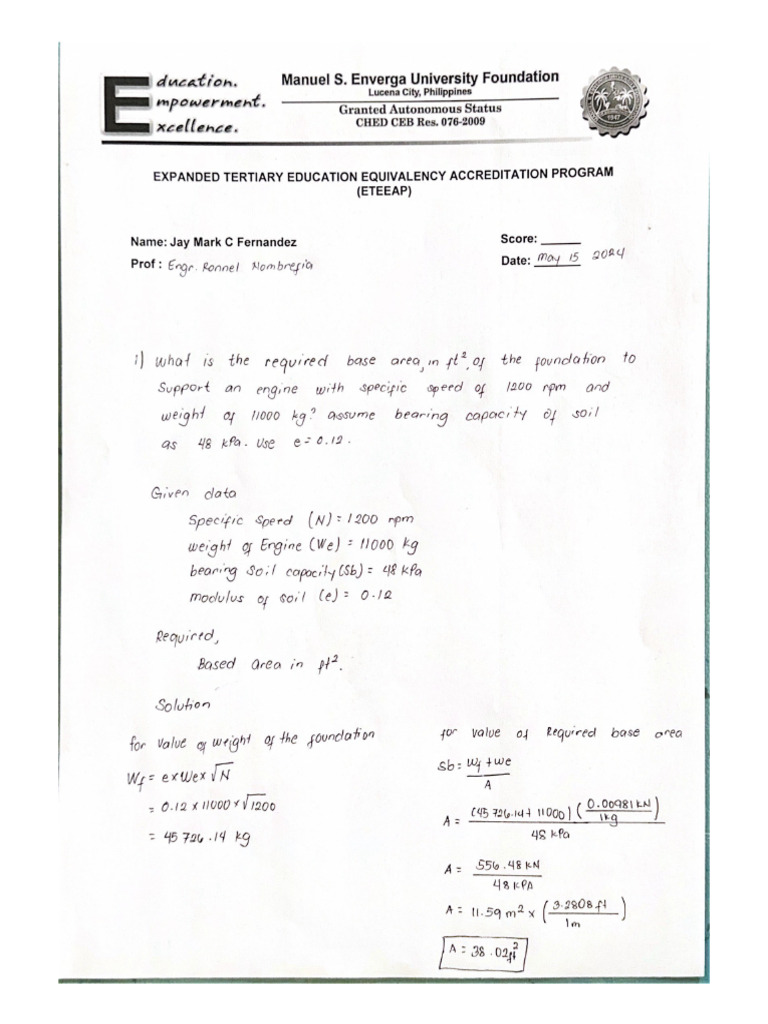 Education.
Empowerment.
Excellence.
Manuel S. Enverga University Foundation
Lucena City, Philippines
Granted Autonomous Status
CHED CEB Res. 076-2009
1947
EXPANDED TERTIARY EDUCATION EQUIVALENCY ACCREDITATION PROGRAM
(ETEEAP)
Name: Jay Mark C Fernandez
Score: ______
Prof : Engr. Ronnel Nombrefia
Date: May 15 2024
1) What is the required base area, in ft², of the foundation to
Support an engine with specific speed of 1200 rpm and
weight of 11000 kg? assume bearing capacity of soil
as 48 kPa. Use e = 0.12.
Given data
Specific Speed (N) = 1200 rpm
weight of Engine (We) = 11000 kg
bearing soil capacity (Sb) = 48 kPa
modulus of soil (e) = 0.12
Required,
Based area in ft².
Solution
for value of weight of the foundation
Wf = e x We x √N
= 0.12 x 11000 x √1200
= 45 726.14 kg
for value of Required base area
Sb = Wf + We / A
A = (45 726.14 + 11000) (0.00981 kN / 1kg) / 48 kPa
A = 556.48 KN / 48 KPA
A = 11.59 m² x (3.2808 ft / 1m)
A = 38.02 ft²